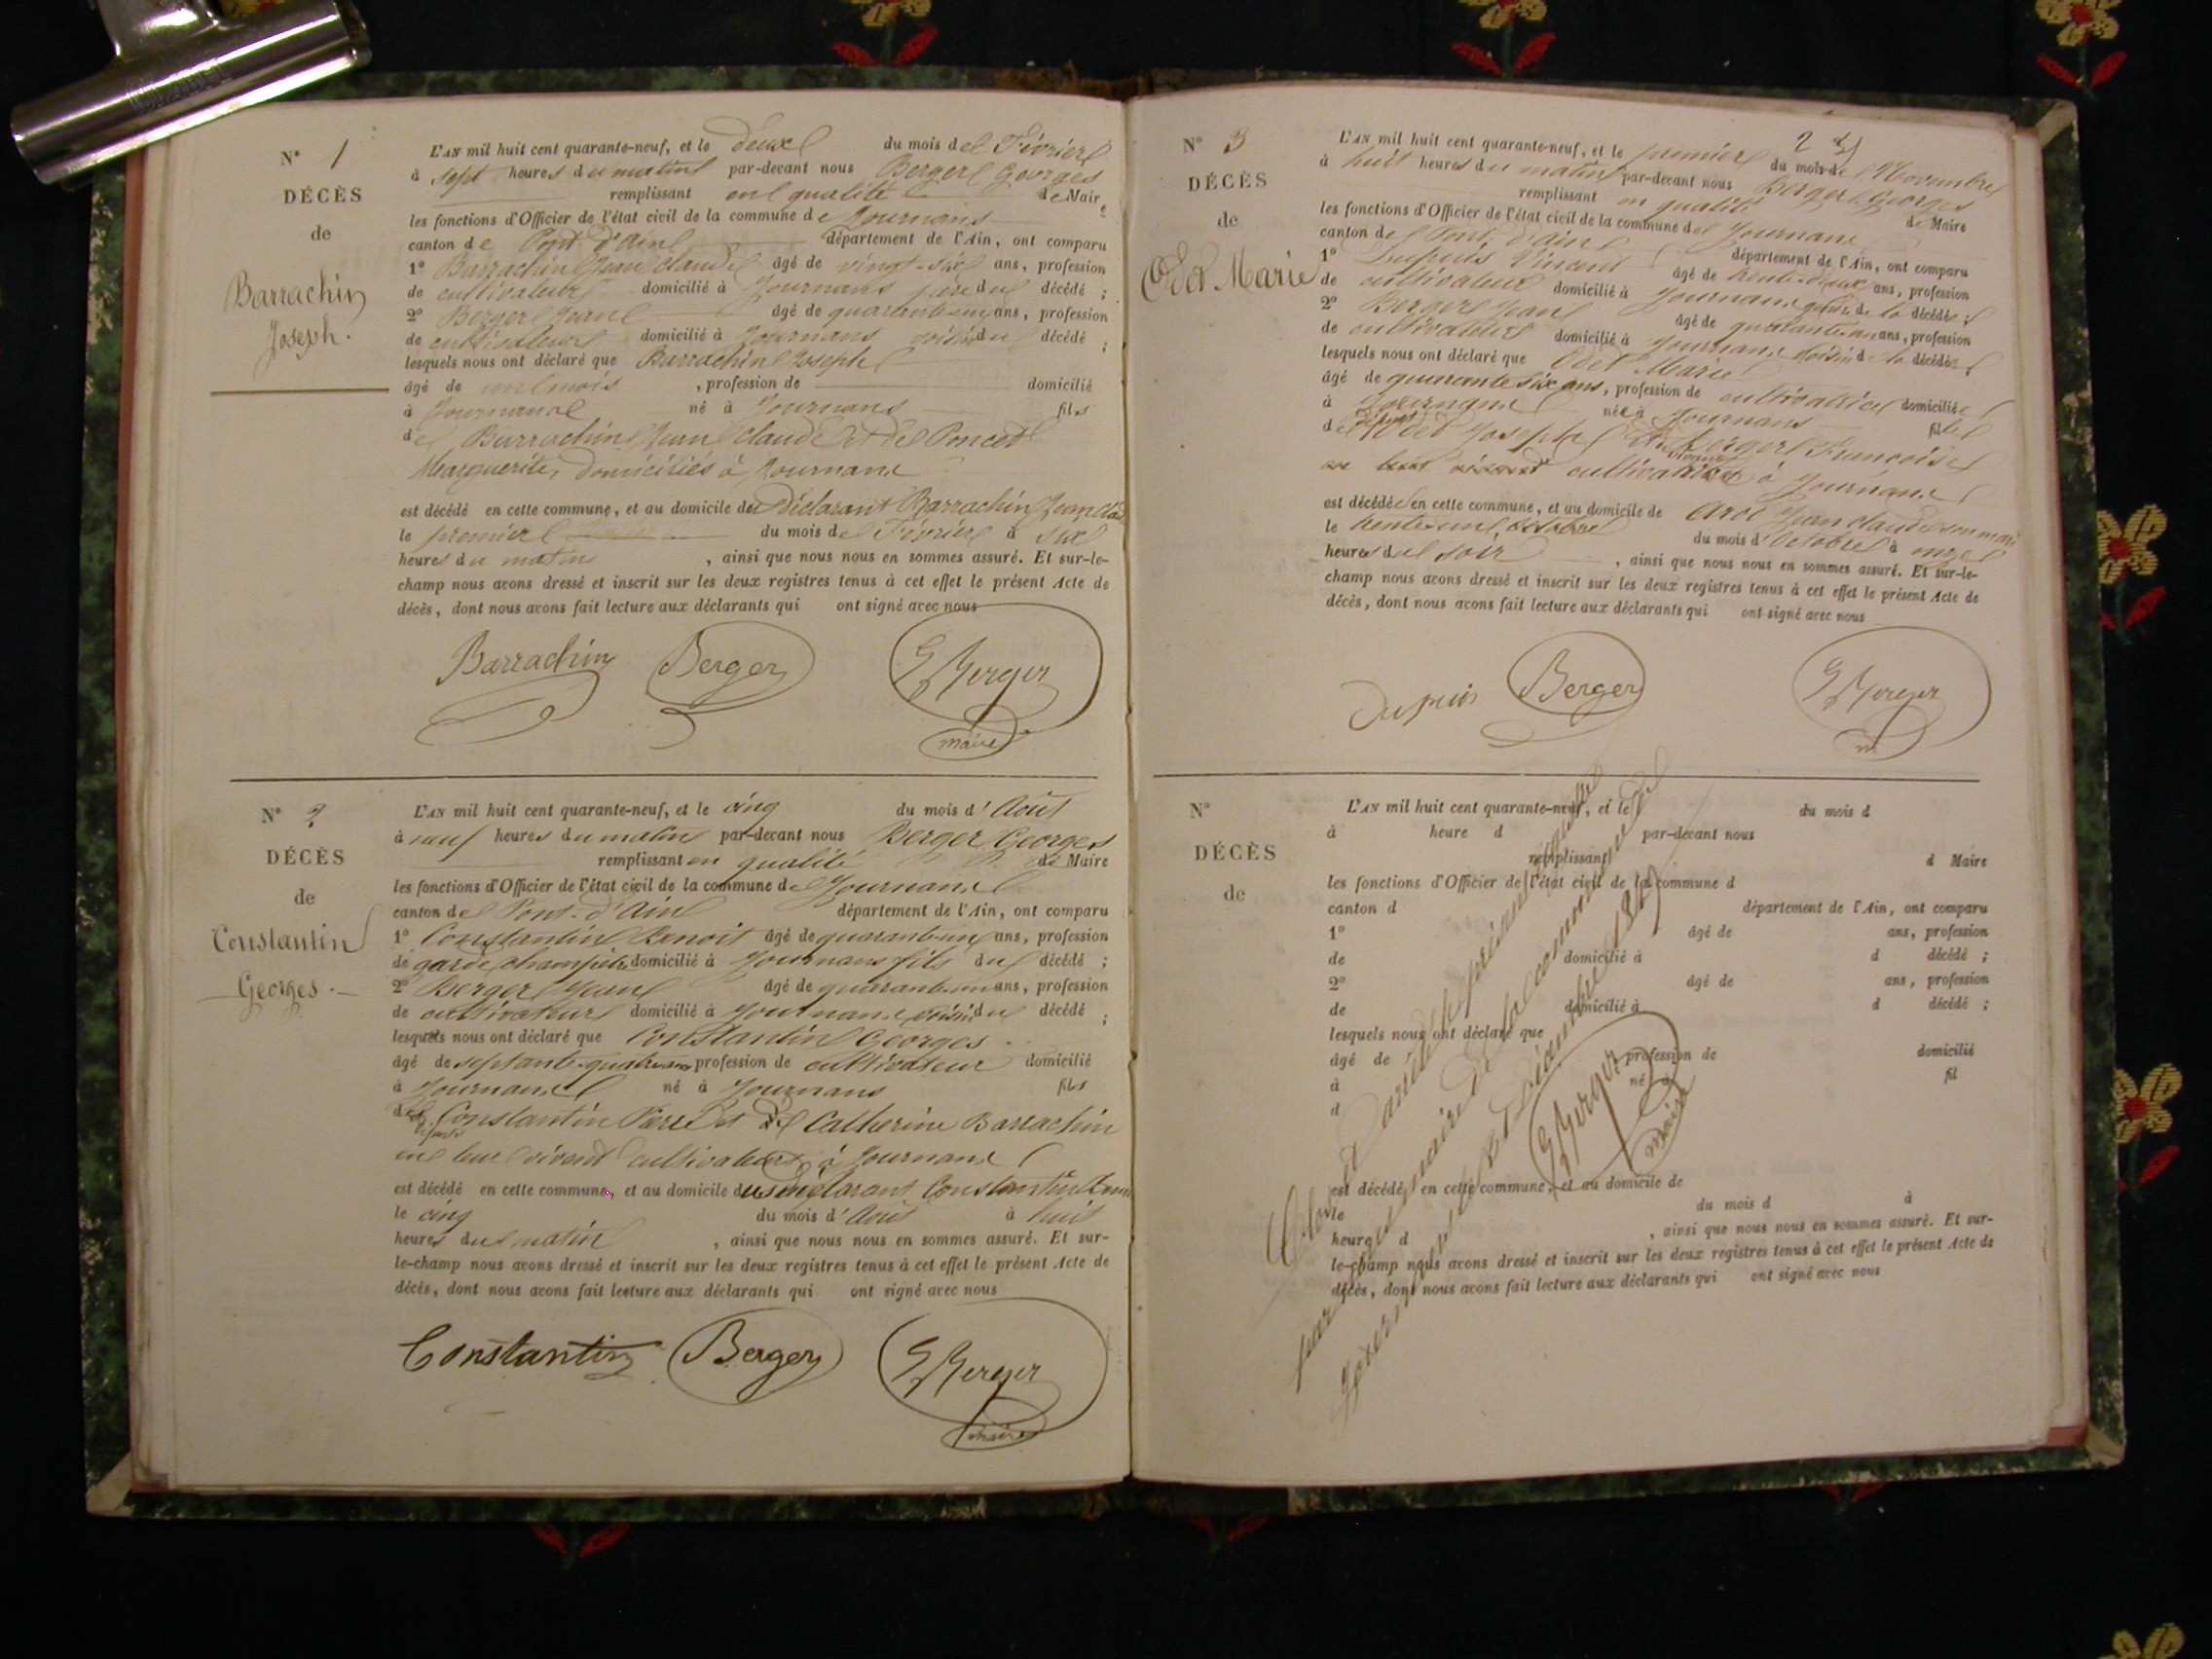 N° 1
DÉCÈS
de
Barrachin
Joseph.
L'AN mil huit cent quarante-neuf, et le deux du mois de Février
à sept heures du matin par-devant nous Berger Georges
remplissant en qualité de Maire
les fonctions d'Officier de l'état civil de la commune de Journans
canton de Pont d'Ain département de l'Ain, ont comparu
1° Barrachin Jean Claude âgé de vingt-six ans, profession
de cultivateur domicilié à Journans père du décédé ;
2° Berger Jean âgé de quarante un ans, profession
de cultivateur domicilié à Journans voisin du décédé ;
lesquels nous ont déclaré que Barrachin Joseph
âgé de un mois , profession de domicilié
à Journans né à Journans fils
de Barrachin Jean Claude et de Poncet
Marguerite, domiciliés à Journans
est décédé en cette commune, et au domicile du Déclarant Barrachin Jean Claude
le premier du mois de Février à six
heures du matin , ainsi que nous nous en sommes assuré. Et sur-le-
champ nous avons dressé et inscrit sur les deux registres tenus à cet effet le présent Acte de
décès, dont nous avons fait lecture aux déclarants qui ont signé avec nous
Barrachin Berger G Berger
maire
N° 2
DÉCÈS
de
Constantin
Georges.
L'AN mil huit cent quarante-neuf, et le cinq du mois d'Août
à neuf heures du matin par-devant nous Berger Georges
remplissant en qualité de Maire
les fonctions d'Officier de l'état civil de la commune de Journans
canton de Pont-d'Ain département de l'Ain, ont comparu
1° Constantin Benoit âgé de quarante-un ans, profession
de garde champêtre domicilié à Journans fils du décédé ;
2° Berger Jean âgé de quarante un ans, profession
de cultivateur domicilié à Journans voisin du décédé ;
lesquels nous ont déclaré que Constantin Georges
âgé de septante-quatre ans profession de cultivateur domicilié
à Journans né à Journans fils
de Constantin Pierre et de Catherine Barrachin
en leur vivant cultivateurs à Journans
est décédé en cette commune, et au domicile du déclarant Constantin
le cinq du mois d'Août à huit
heures du matin , ainsi que nous nous en sommes assuré. Et sur-
le-champ nous avons dressé et inscrit sur les deux registres tenus à cet effet le présent Acte de
décès, dont nous avons fait lecture aux déclarants qui ont signé avec nous
Constantin Berger G Berger
maire
2
N° 3
DÉCÈS
de
Odet Marie
L'AN mil huit cent quarante-neuf, et le premier du mois de Novembre
à huit heures du matin par-devant nous Berger Georges
remplissant en qualité de Maire
les fonctions d'Officier de l'état civil de la commune de Journans
canton de Pont d'Ain département de l'Ain, ont comparu
1° Dupuis Vincent âgé de trente-deux ans, profession
de cultivateur domicilié à Journans gendre de la décédée ;
2° Berger Jean âgé de quarante un ans, profession
de cultivateur domicilié à Journans voisin de la décédée ;
lesquels nous ont déclaré que Odet Marie
âgé de quarante six ans, profession de cultivatrice domiciliée
à Journans née à Journans fille
de Odet Joseph et de Berger Françoise
cultivatrice à Journans
est décédée en cette commune, et au domicile de Jean Claude son mari
le trente-un octobre du mois d'Octobre à onze
heures du soir , ainsi que nous nous en sommes assuré. Et sur-le-
champ nous avons dressé et inscrit sur les deux registres tenus à cet effet le présent Acte de
décès, dont nous avons fait lecture aux déclarants qui ont signé avec nous
Dupuis Berger G Berger
m
N°
DÉCÈS
de
L'AN mil huit cent quarante-neuf, et le du mois d
à heure d par-devant nous
remplissant d Maire
les fonctions d'Officier de l'état civil de la commune d
canton d département de l'Ain, ont comparu
1° âgé de ans, profession
de domicilié à d décédé ;
2° âgé de ans, profession
de domicilié à d décédé ;
lesquels nous ont déclaré que
âgé de profession de domicilié
à né à fil
d
est décédé en cette commune, et au domicile de
le du mois d à
heure d , ainsi que nous nous en sommes assuré. Et sur-
le-champ nous avons dressé et inscrit sur les deux registres tenus à cet effet le présent Acte de
décès, dont nous avons fait lecture aux déclarants qui ont signé avec nous
Clos et arrêté le présent registre
par nous maire de la commune de
Journans le 31 Décembre 1849
G Berger
maire